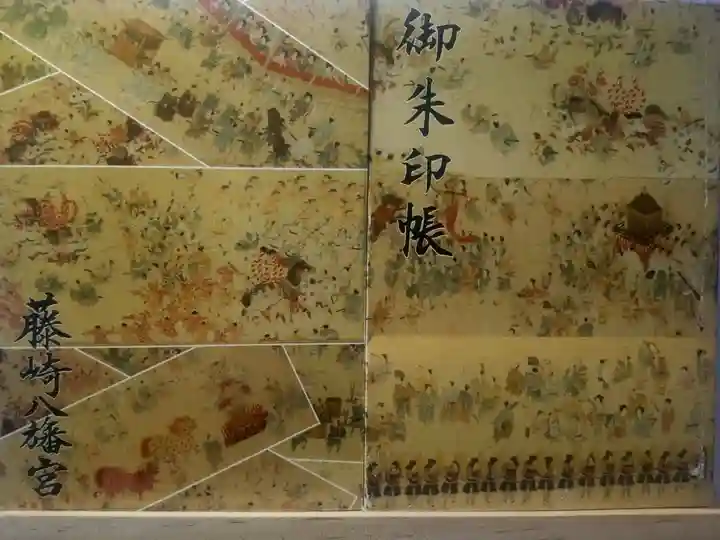 御朱印帳
藤崎八旛宮